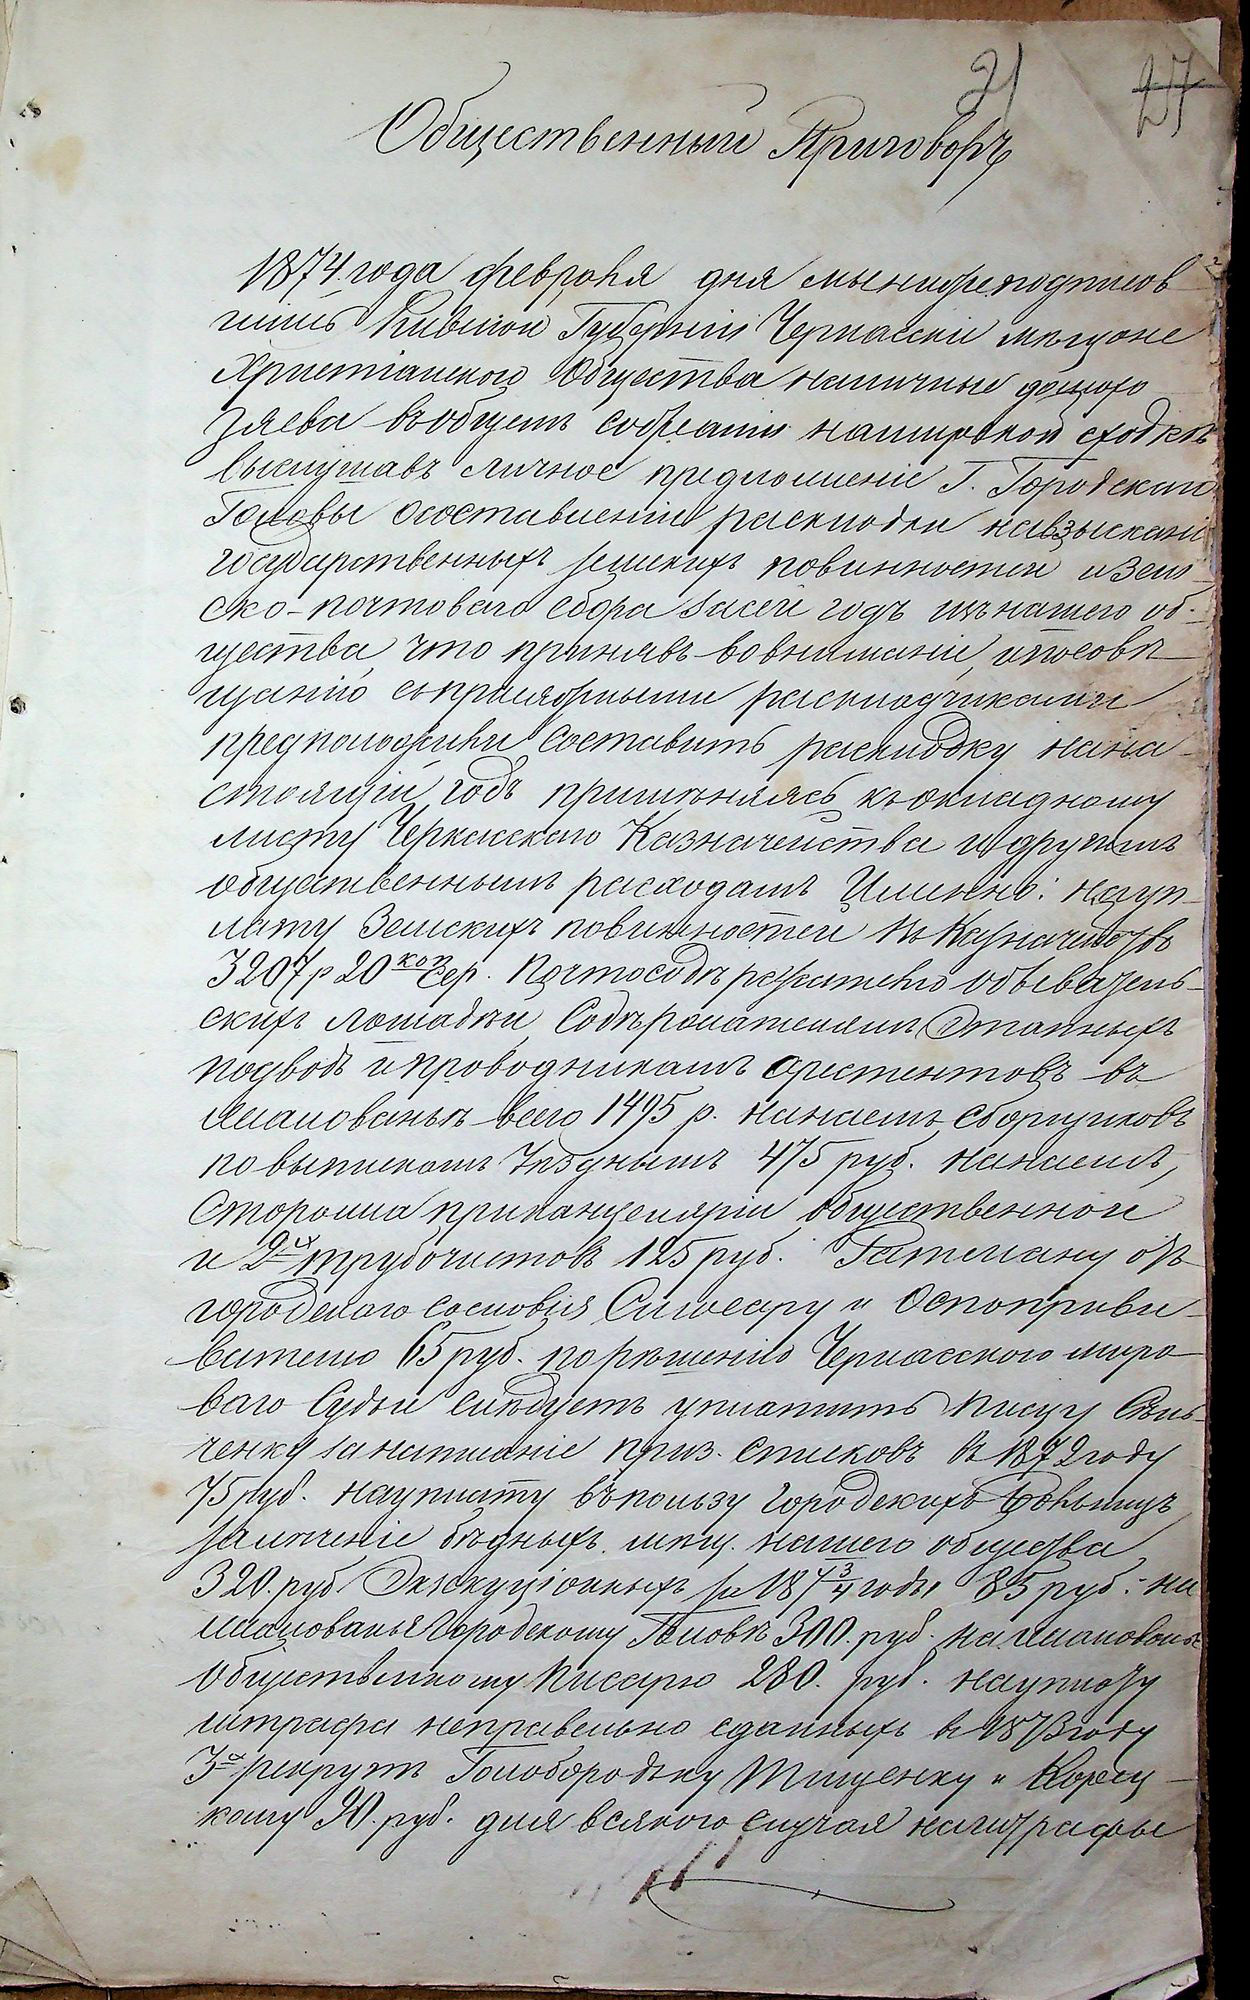 21 27
Общественный Приговоръ
1874 года февраля дня мы нижеподписав
шиесь Кіевской Губерніи Черкасскіе мещане
Христіанского Общества наличные домохо
зяева въ общемъ собраніи на мирской сходкѣ
выслушавъ личное предложеніе Г. Городскаго
Головы о составленіи раскладки на взысканіе
государственныхъ земскихъ повинностей и Зем-
ско-почтоваго сбора за сей годъ изъ нашего об-
щества, что принявъ во вниманіе, и по совѣ-
щанію съ присяжными раскладчиками
предположили составить раскладку на на-
стоящій годъ примѣняясь къ окладному
листу Черкасскаго Казначейства и другимъ
общественнымъ расходамъ Именно: на уп-
лату Земскихъ повинностей въ Казначейство
3207 р 20 коп сер. Почтосодѣржателю обыватель-
скихъ лошадей, Содѣржателямъ Этапныхъ
подводъ и проводникамъ арестентовъ въ
жалованьѣ всего 1495 р. на наемъ сборщиковъ
по выпискамъ Уѣзднымъ 475 руб. на наемъ,
Сторожа при канцеляріи общественной
и 2х трубочистовъ 125 руб. Ратману отъ
городскаго сословія Слюсару и Оспоприви-
вателю 65 руб. по рѣшенію Черкасского миро
ваго Судьи слѣдуетъ уплатить Писцу
ченку за написаніе приз. списковъ въ 1872 году
75 руб. на уплату въ пользу городскихъ больницъ
за леченіе бѣдныхъ мѣщ. нашего общества
320. руб. Экзекуціонныхъ за 1873/4 годы 85 руб. на
жалованья Городскому Головѣ 300. руб. на жалованье
Общественному Писарю 280. руб. на уплату
штрафа неправельно сданныхъ въ 1873 году
3х рекрутъ Голобородьку Тищенку и
кому 90. руб. для всякого случая на штрафы